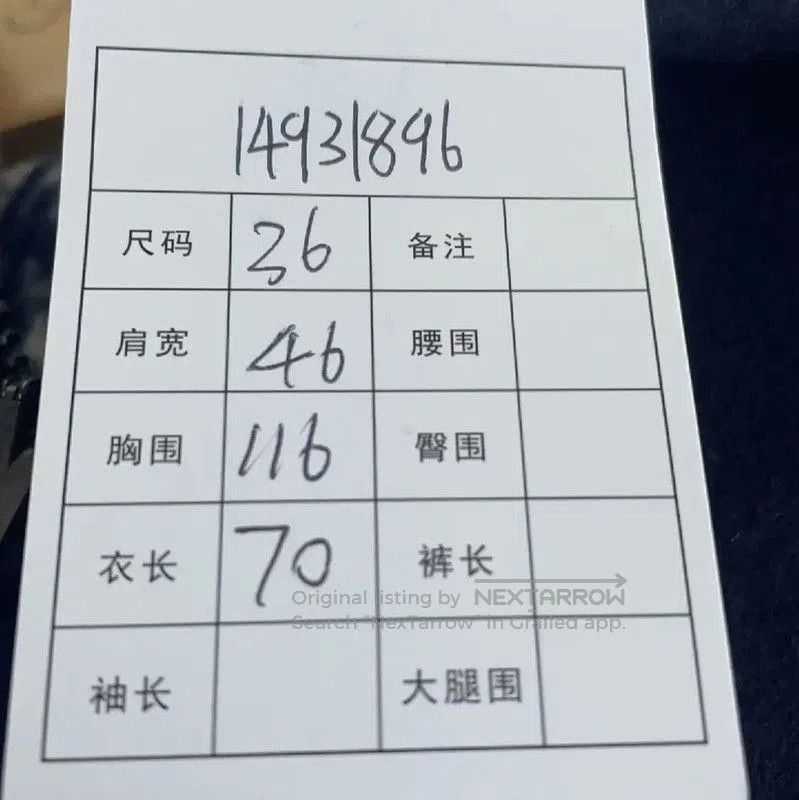 14931896
尺码 36 备注
肩宽 46 腰围
胸围 116 臀围
衣长 70 裤长
Original listing by NEXTARROW
Search "NexTarrow" in Grailed app.
袖长 大腿围